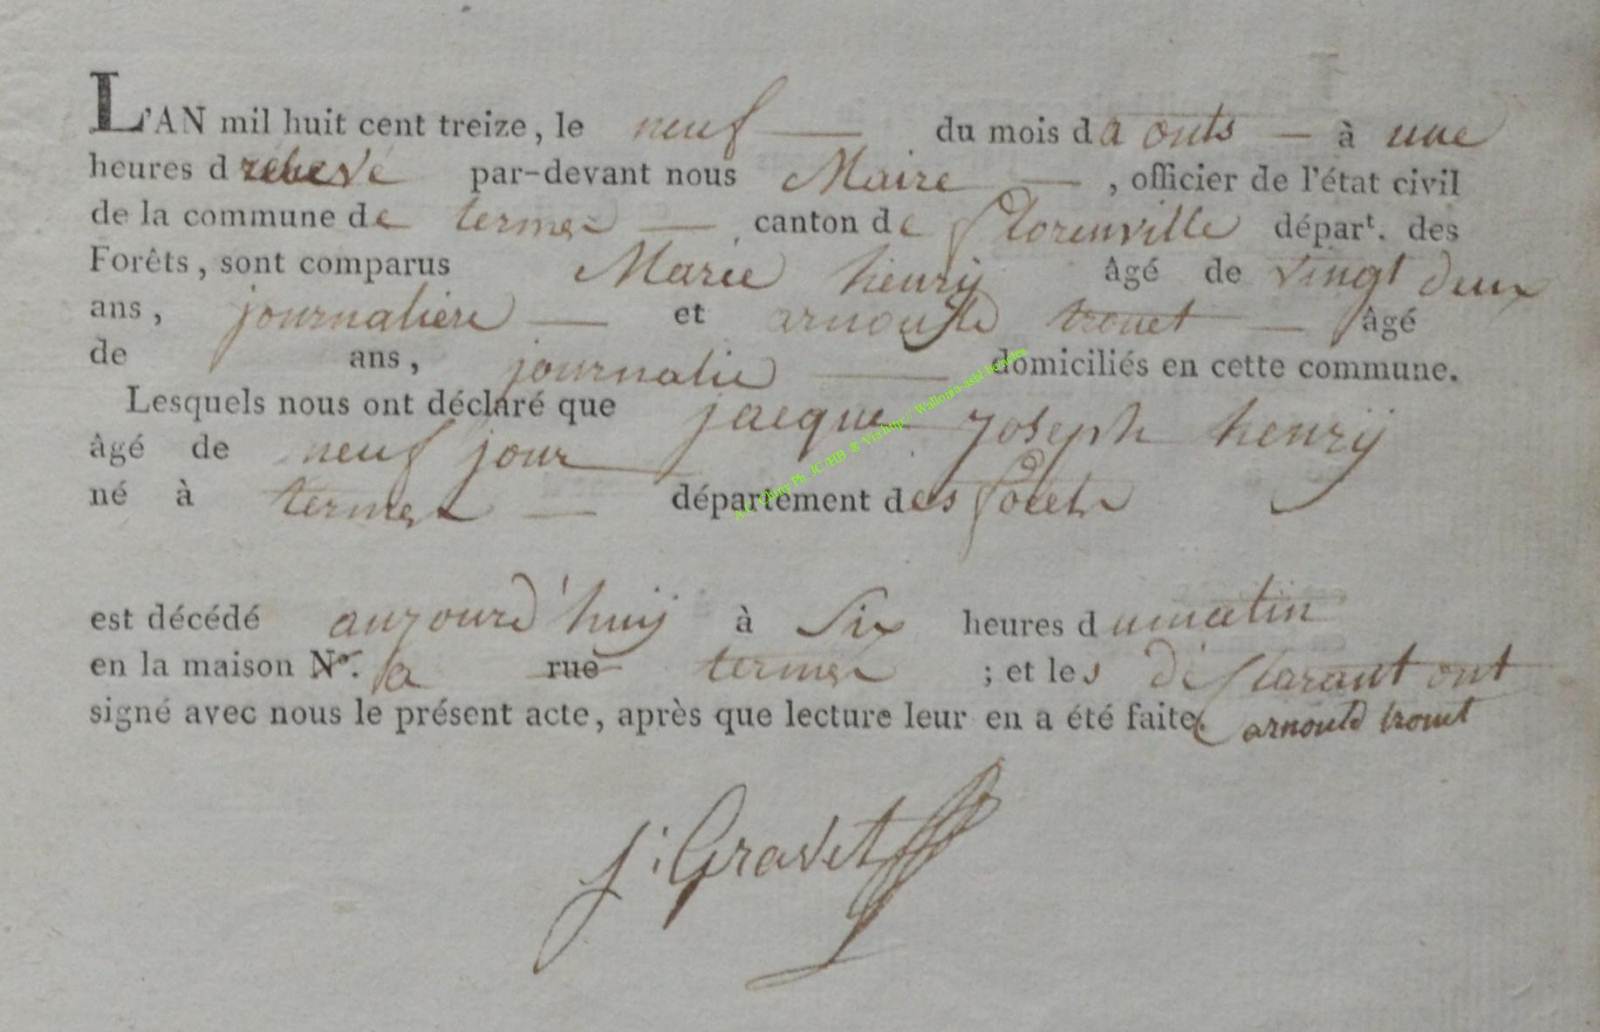 L'AN mil huit cent treize, le neuf du mois d aouts à une
heures d relevé par-devant nous Maire, officier de l'état civil
de la commune de termes canton de florenville départ. des
Forêts, sont comparus Marie henry âgé de vingt deux
ans, journaliere et arnould trouet âgé
de ans, journalie domiciliés en cette commune.
Lesquels nous ont déclaré que jacque joseph henry
âgé de neuf jour
né à termes département des forets
est décédé aujourd'huij à six heures du matin
en la maison No. a rue termes ; et les déclarant ont
signé avec nous le présent acte, après que lecture leur en a été faite. arnould trouet
j: Gravet